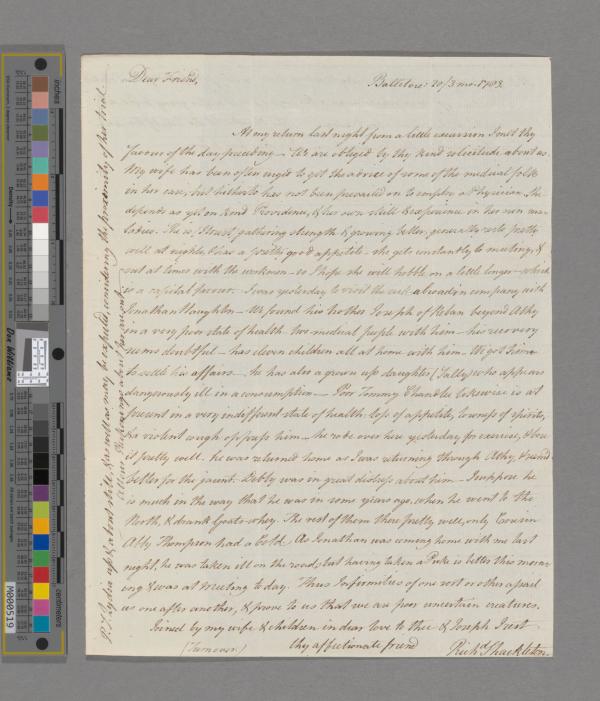 Dear Friend,
Ballitore: 20/3 mo. 1783.
At my return last night from a little excursion I met thy
favour of the day preceding — We are obliged by thy kind solicitude about us.
My wife has been often urged to get the advice of some of the medical folk
in her case, but hitherto has not been prevailed on to employ a Physician. She
depends as yet on kind Providence, & her own skill & experience in her own ma-
ladies. She is, I trust, gathering strength & growing better, generally rests pretty
well at nights, & has a pretty good appetite — she gets constantly to meeting, &
out at times with the workmen — so I hope she will hobble on a little longer — which
is a capital favour. I was yesterday to visit the sick abroad in company with
Jonathan Haughton — We found his brother Joseph of Reban beyond Athy
in a very poor state of health. two medical people with him — his recovery
seems doubtful — has eleven children all at home with him. We got him
to settle his affairs — he has also a grown up daughter (Sally) who appears
dangerously ill in a consumption — Poor Tommy Chandlee likewise is at
present in a very indifferent state of health: loss of appetite, lowness of spirits,
& a violent cough oppress him — he rode over here yesterday for exercise, & bore
it pretty well. he was returned home as I was returning through Athy, & was
better for the jaunt. Debby was in great distress about him — I suppose he
is much in the way that he was in some years ago, when he went to the
North, & drank Goats-whey. The rest of them there pretty well, only Cousin
Abby Thompson had a Cold. As Jonathan was coming home with me last
night, he was taken ill on the road, but having taken a Puke is better this morn-
ing & was at Meeting to day. Thus Infirmities of one sort or other assail
us one after another, & prove to us that we are poor uncertain creatures.
Joined by my wife & children in dear love to thee & Joseph I rest
thy affectionate friend
Richd Shackleton.
(Turn over)
P.S. Lydia up & about still, & as well as may be expected, considering the proximity of her trial
All our Reckonings about her are out.
inches
centimetres
Density
Don Williams
M000519